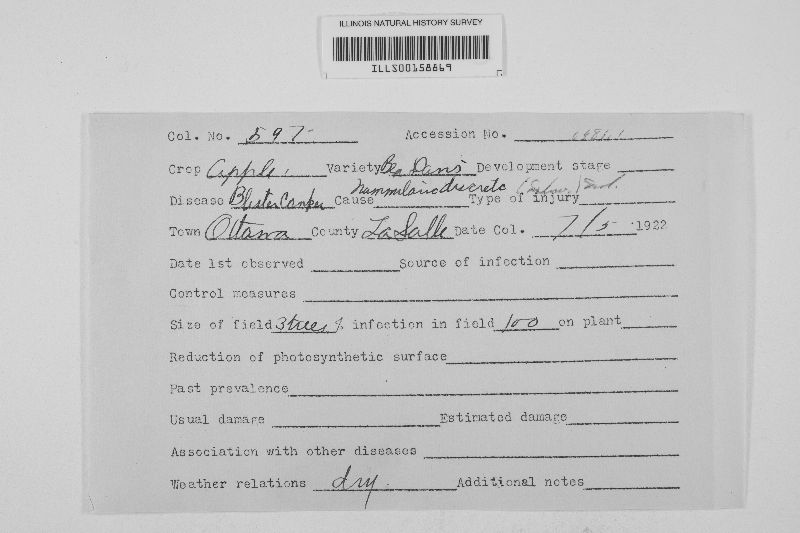 ILLINOIS NATURAL HISTORY SURVEY
ILLS00158869
Col. No. 597 Accession No.
Crop Apple, Variety Ben Davis Development stage
Disease Blister Canker Cause Nummularia discreta Type of injury
Town Ottawa County La Salle Date Col. 7/5 1922
Date 1st observed Source of infection
Control measures
Size of field 3 trees % infection in field 100 on plant
Reduction of photosynthetic surface
Past prevalence
Usual damage Estimated damage
Association with other diseases
Weather relations dry. Additional notes